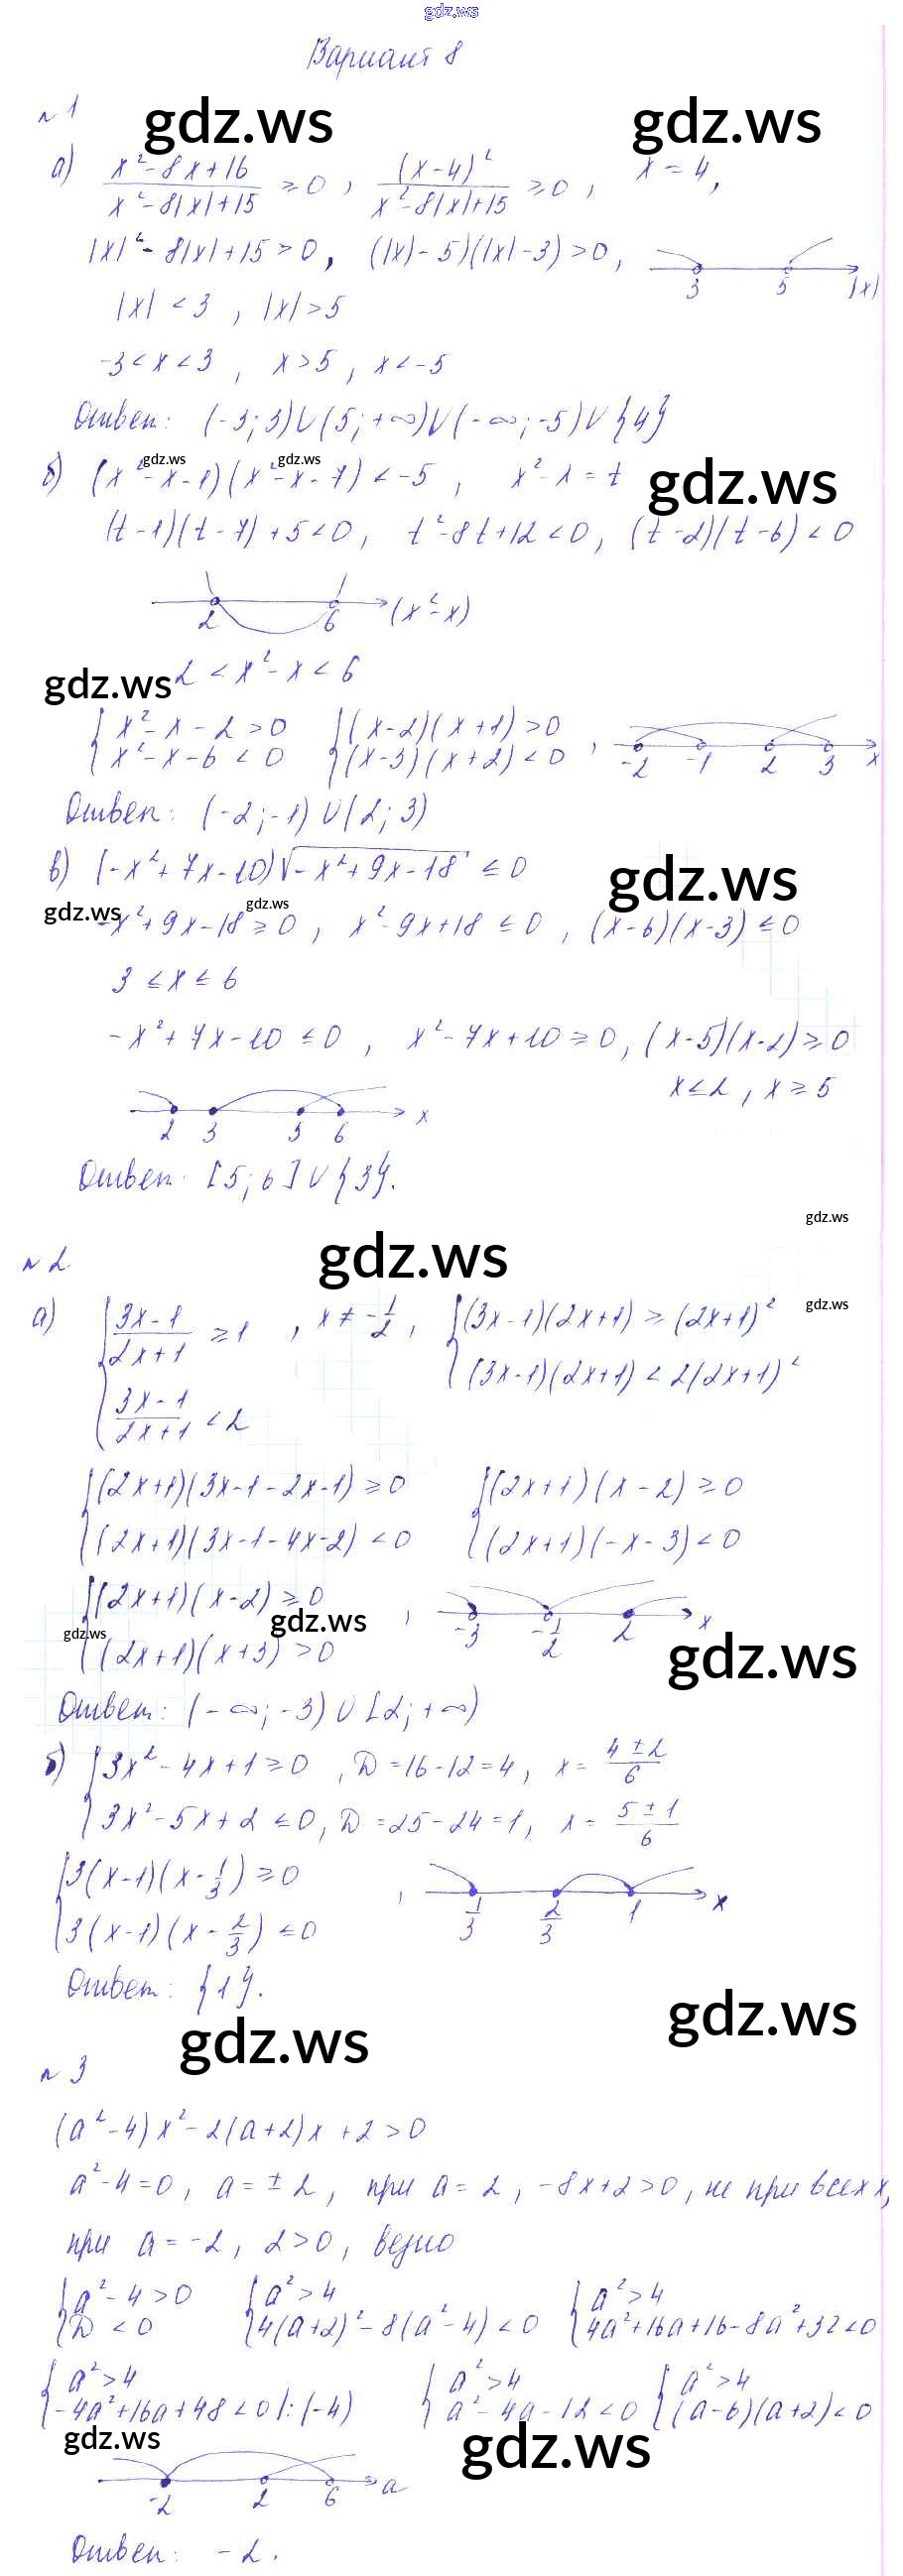 gdz.ws
Вариант 8
№ 1
gdz.ws gdz.ws
а) (x²-8x+16)/(x²-8|x|+15) ≥ 0, (x-4)²/(x²-8|x|+15) ≥ 0, x = 4,
|x|²-8|x|+15 > 0, (|x|-5)(|x|-3) > 0,
3 5 |x|
|x| < 3, |x| > 5
-3 < x < 3, x > 5, x < -5
Ответ: (-3; 3)∪(5; +∞)∪(-∞; -5)∪{4}
gdz.ws gdz.ws gdz.ws
б) (x²-x-1)(x²-x-7) < -5, x²-x = t
(t-1)(t-7)+5 < 0, t²-8t+12 < 0, (t-2)(t-6) < 0
2 6 (x²-x)
gdz.ws
2 < x²-x < 6
{x²-x-2 > 0 {(x-2)(x+1) > 0
{x²-x-6 < 0 {(x-3)(x+2) < 0,
-2 -1 2 3 x
Ответ: (-2; -1)∪(2; 3)
в) (-x²+7x-10)√(-x²+9x-18) ≤ 0
gdz.ws
gdz.ws gdz.ws
-x²+9x-18 ≥ 0, x²-9x+18 ≤ 0, (x-6)(x-3) ≤ 0
3 ≤ x ≤ 6
-x²+7x-10 ≤ 0, x²-7x+10 ≥ 0, (x-5)(x-2) ≥ 0
x ≤ 2, x ≥ 5
2 3 5 6 x
Ответ: [5; 6]∪{3}.
gdz.ws
№ 2
gdz.ws
gdz.ws
а) {(3x-1)/(2x+1) ≥ 1, x ≠ -1/2, {(3x-1)(2x+1) ≥ (2x+1)²
{(3x-1)/(2x+1) < 2 {(3x-1)(2x+1) < 2(2x+1)²
{(2x+1)(3x-1-2x-1) ≥ 0 {(2x+1)(x-2) ≥ 0
{(2x+1)(3x-1-4x-2) < 0 {(2x+1)(-x-3) < 0
{(2x+1)(x-2) ≥ 0
gdz.ws gdz.ws gdz.ws
{(2x+1)(x+3) > 0,
-3 -1/2 2 x
Ответ: (-∞; -3)∪[2; +∞)
б) {3x²-4x+1 ≥ 0, D = 16-12 = 4, x = (4±2)/6
{3x²-5x+2 ≤ 0, D = 25-24 = 1, x = (5±1)/6
{3(x-1)(x-1/3) ≥ 0
{3(x-1)(x-2/3) ≤ 0,
1/3 2/3 1 x
Ответ: {1}.
gdz.ws gdz.ws
№ 3
(a²-4)x²-2(a+2)x+2 > 0
a²-4 = 0, a = ±2, при a = 2, -8x+2 > 0, не при всех x,
при a = -2, 2 > 0, верно
{a²-4 > 0 {a² > 4 {a² > 4
{D < 0 {4(a+2)²-8(a²-4) < 0 {4a²+16a+16-8a²+32 < 0
{a² > 4 {a² > 4 {a² > 4
{-4a²+16a+48 < 0 |:(-4) {a²-4a-12 < 0 {(a-6)(a+2) < 0
gdz.ws gdz.ws
-2 2 6 a
Ответ: -2.